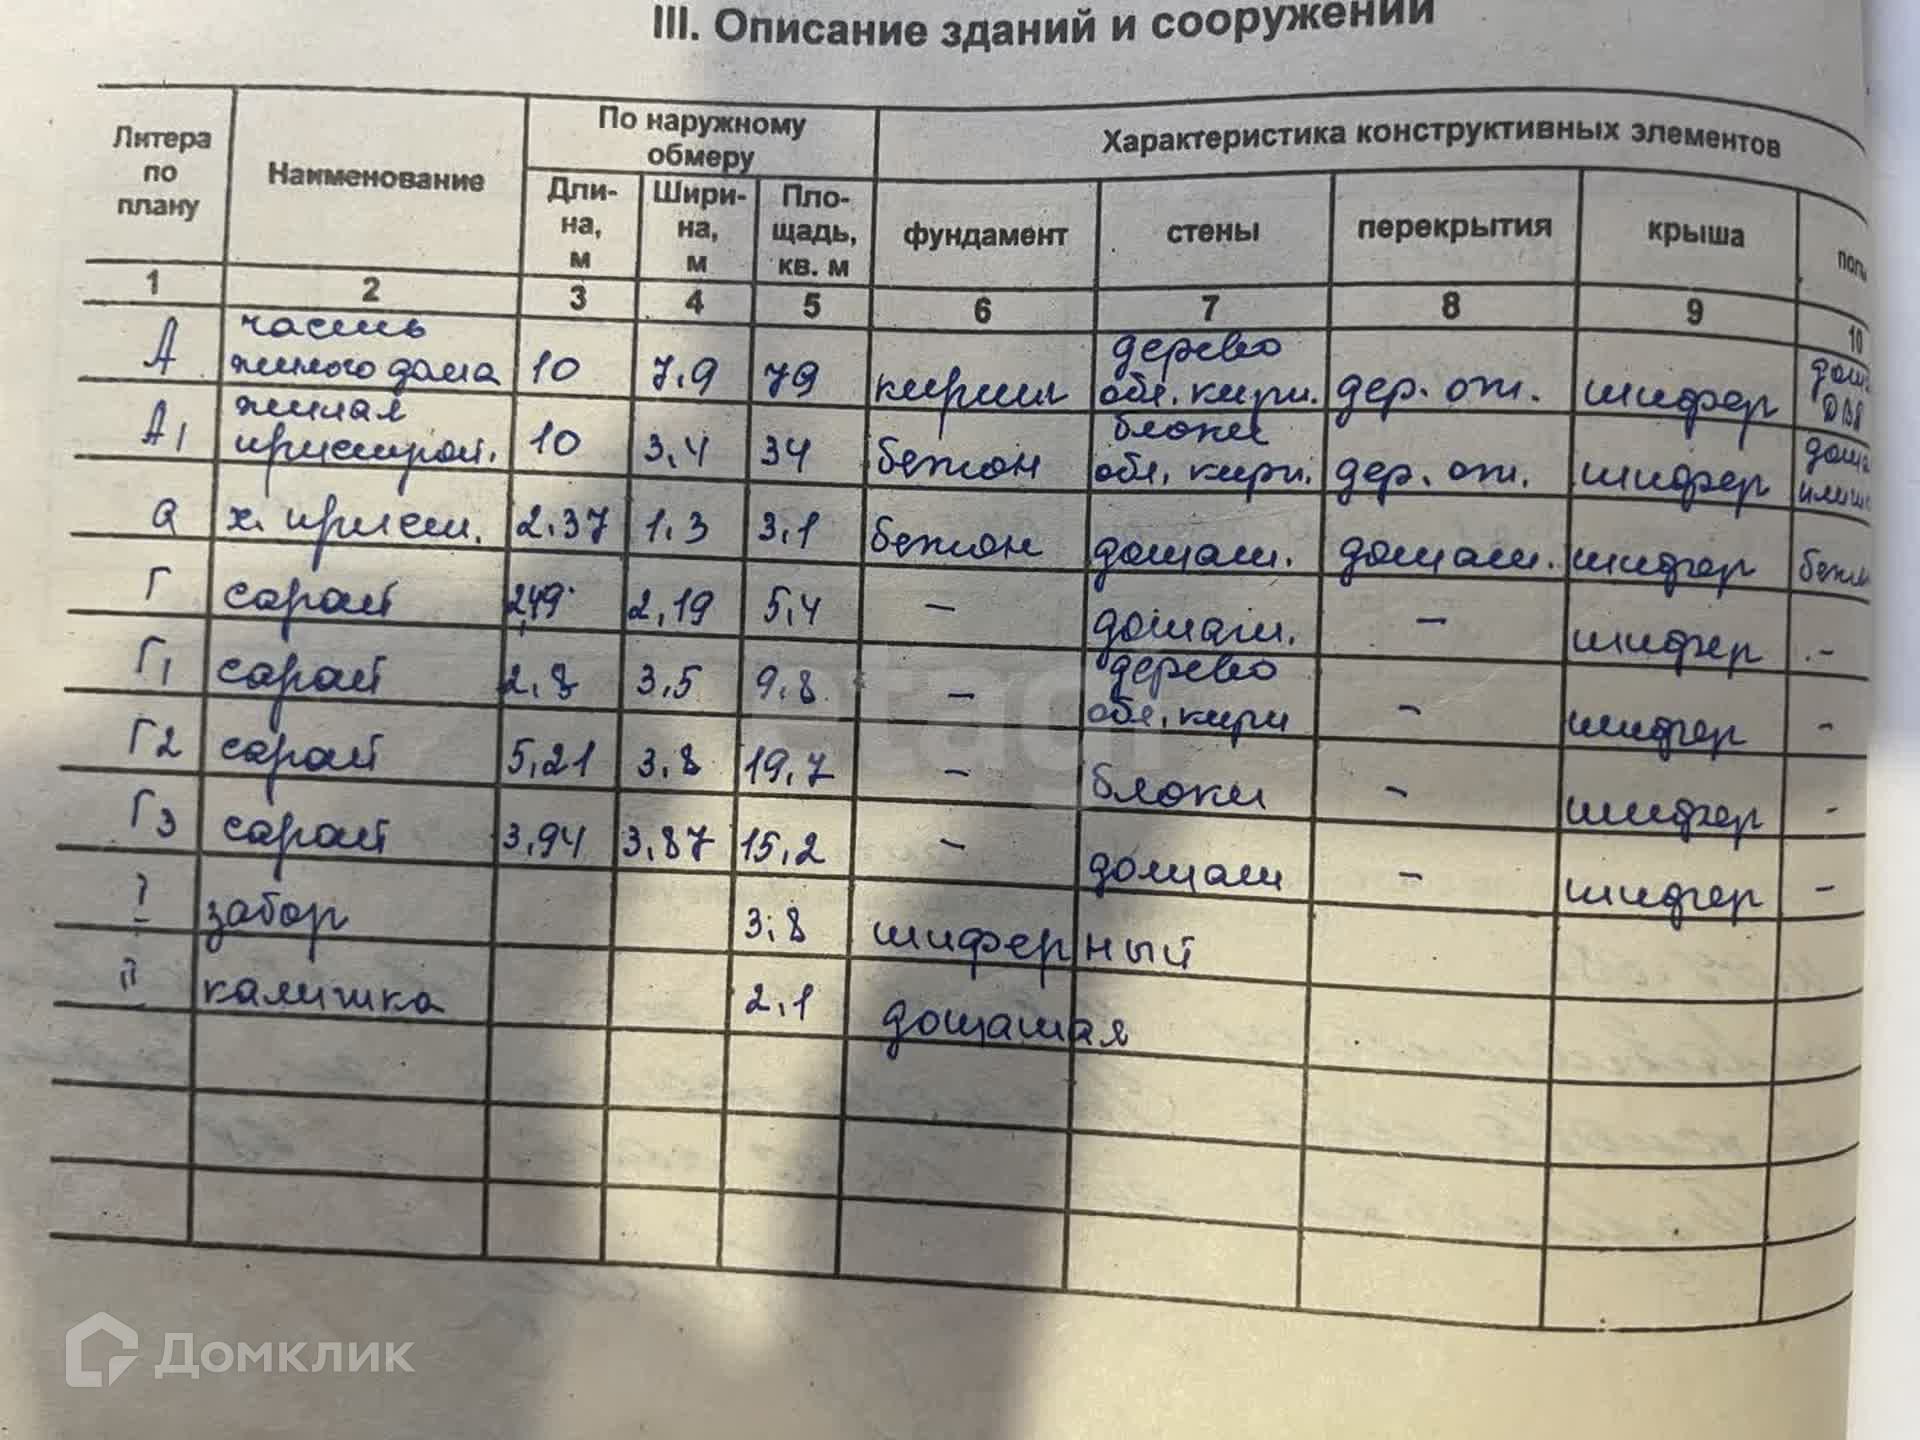 III. Описание зданий и сооружений
Литера по плану
Наименование
По наружному обмеру
Характеристика конструктивных элементов
Дли-на, м
Шири-на, м
Пло-щадь, кв. м
фундамент
стены
перекрытия
крыша
полы
1 2 3 4 5 6 7 8 9 10
А часть жилого дома 10 7,9 79 кирпич дерево обл. кирп. дер. от. шифер дощ ДВП
А1 жилая пристрой. 10 3,4 34 бетон блоки обл. кирп. дер. от. шифер
а х. прист. 2,37 1,3 3,1 бетон дощат. дощат. шифер бетон
Г сарай 2,49 2,19 5,4 – дощат. – шифер –
Г1 сарай 2,8 3,5 9,8 – дерево обл. кирп – шифер –
Г2 сарай 5,21 3,8 19,7 – блоки – шифер –
Г3 сарай 3,94 3,87 15,2 – дощат – шифер –
I забор 3,8 шиферный
II калитка 2,1 дощатая
etagi
Домклик